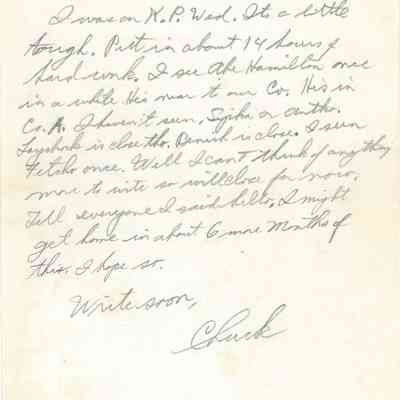 I was on K.P. Wed. Its a little
tough. Put in about 14 hours of
hard work. I see Abe Hamilton once
in a while His near to our Co. His in
Co. A. I haven't seen, or
is close tho. is close. I seen
once. Well I cant think of anything
more to write so will close for now.
Tell everyone I said hello, I might
get home in about 6 more months of
this. I hope so.
Write soon,
Chuck